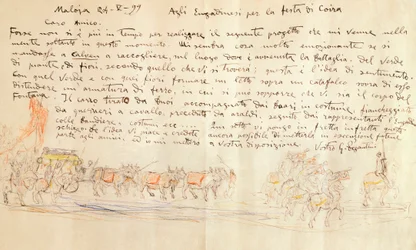 Maloja 24-V-99 Agli Engadinesi per la festa di Coira
Caro Amico.
Forse non si è più in tempo per realizzare il seguente progetto che mi venne nella
mente soltanto in questo momento. Mi sembra cosa molto emozionante se si
andasse a Calven a raccogliere, nel luogo dove avvenne la battaglia, del verde
di piante, di fiori, secondo quello che vi si troverà: questa è l'idea di sentimento.
Con quel verde e con quei fiori formare un letto sopra un catafalco sopra di esso
distendere un'armatura di ferro, in cui si può supporre che vi sia il corpo del
Fontana. Il carro tirato da buoi accompagnato dai in costume e fiancheggiato
da guerrieri a cavallo, preceduto da araldi, seguiti dai rappresentanti i
colle bandiere e costumi ecc... Qui sotto vi pongo in fretta in fretta questo
schizzo se l'idea vi piace e credete ancora possibile di metterla in esecuzione fatene
parte agli amici, ed io mi metto a vostra disposizione. Vostro G. Segantini